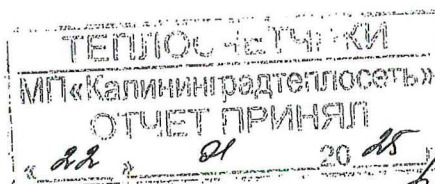 ТЕПЛОСЧЕТЧИКИ
МП«Калининградтеплосеть»
ОТЧЕТ ПРИНЯЛ
« 22 » 01 20 25 г.